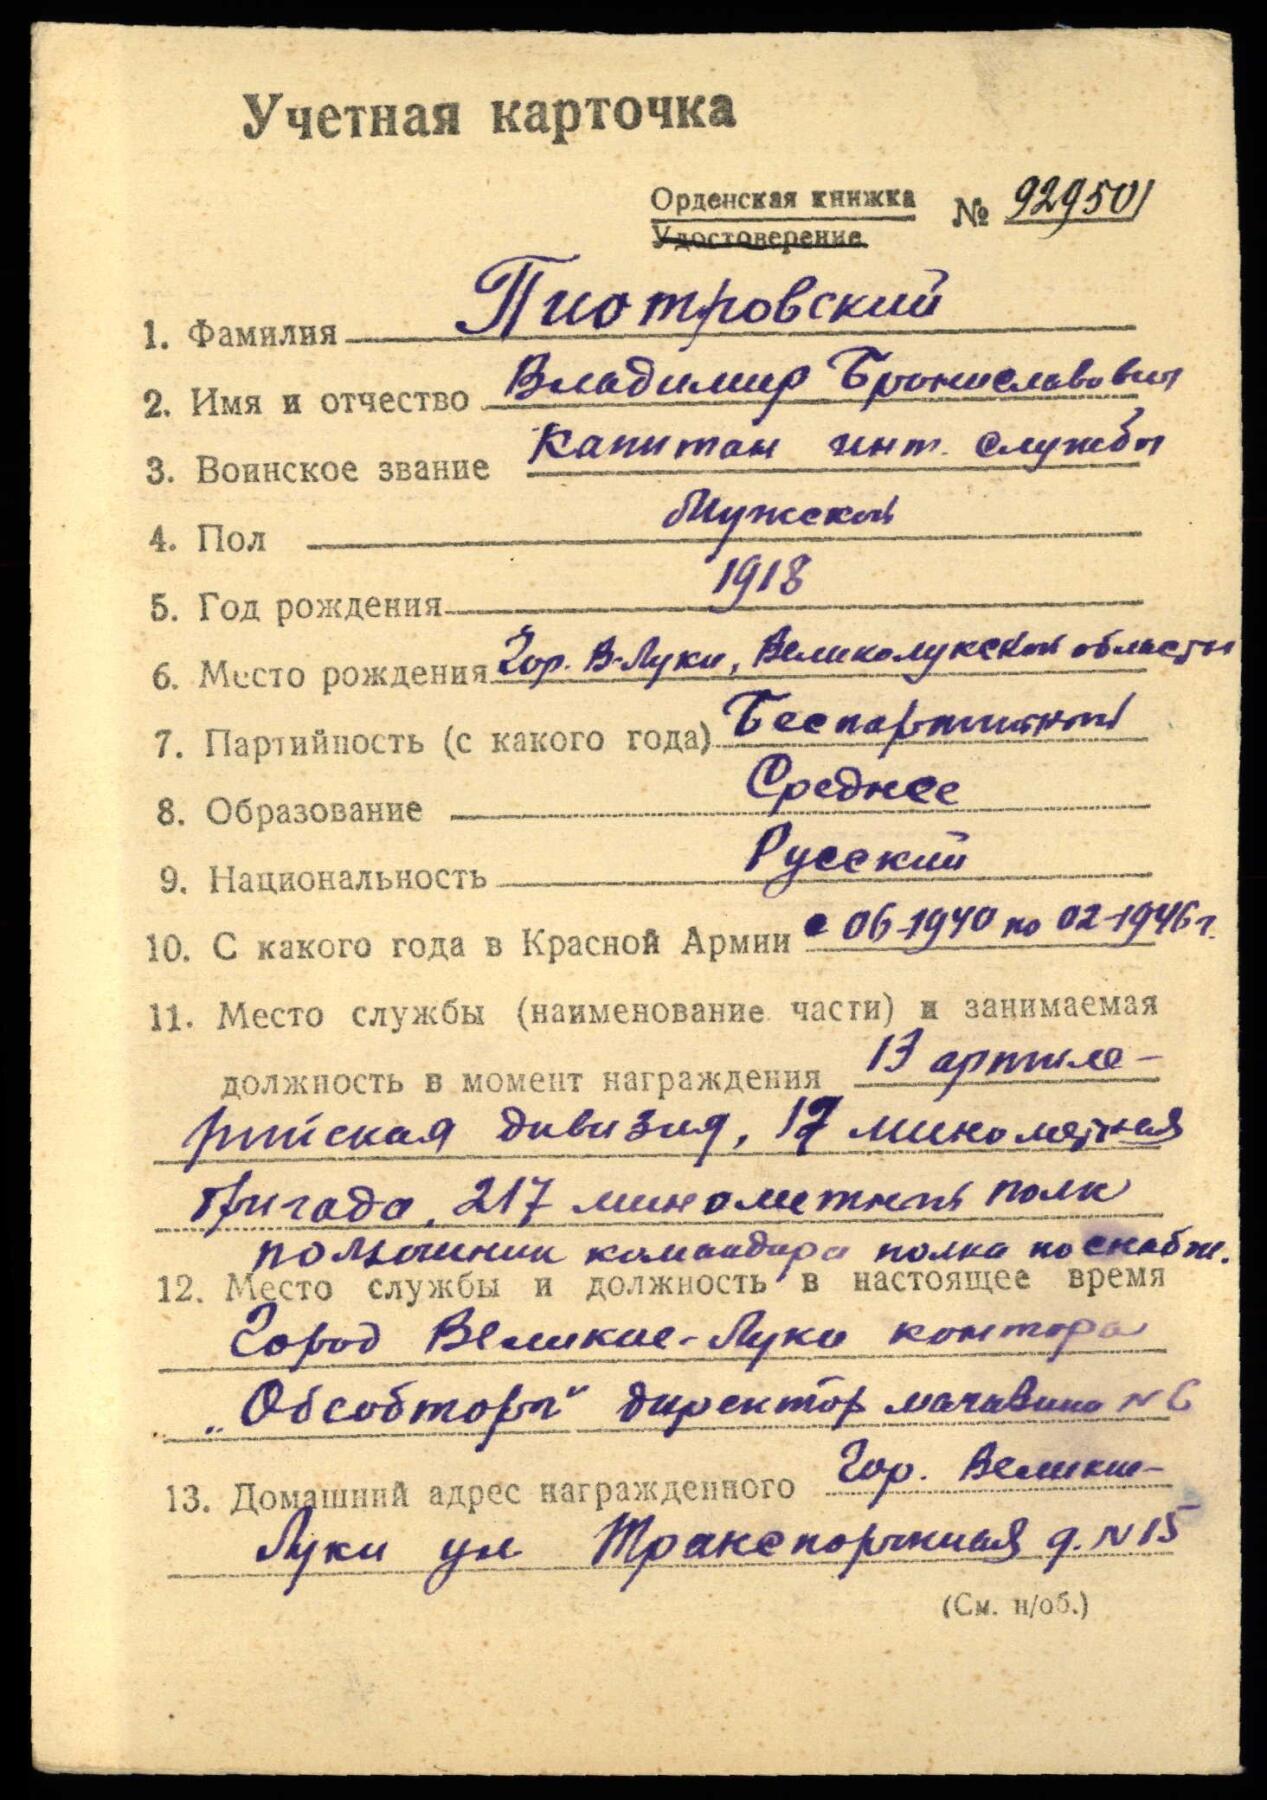 Учетная карточка
Орденская книжка № 929501
Удостоверение
1. Фамилия Пиотровский
2. Имя и отчество Владимир Брониславович
3. Воинское звание Капитан инт. службы
4. Пол Мужской
5. Год рождения 1918
6. Место рождения Гор. В-Луки, Великолукской области
7. Партийность (с какого года) Беспартийный
8. Образование Среднее
9. Национальность Русский
10. С какого года в Красной Армии с 06-1940 по 02-1946 г.
11. Место службы (наименование части) и занимаемая
должность в момент награждения 13 артиле-
рийская дивизия, 17 минометная
бригада, 217 минометный полк
помошник командира полка по снабж.
12. Место службы и должность в настоящее время
Город Великие-Луки контора
„Обсобторг" директор магазина № 6
13. Домашний адрес награжденного Гор. Великие-
Луки ул Транспортная д. № 15
(См. н/об.)